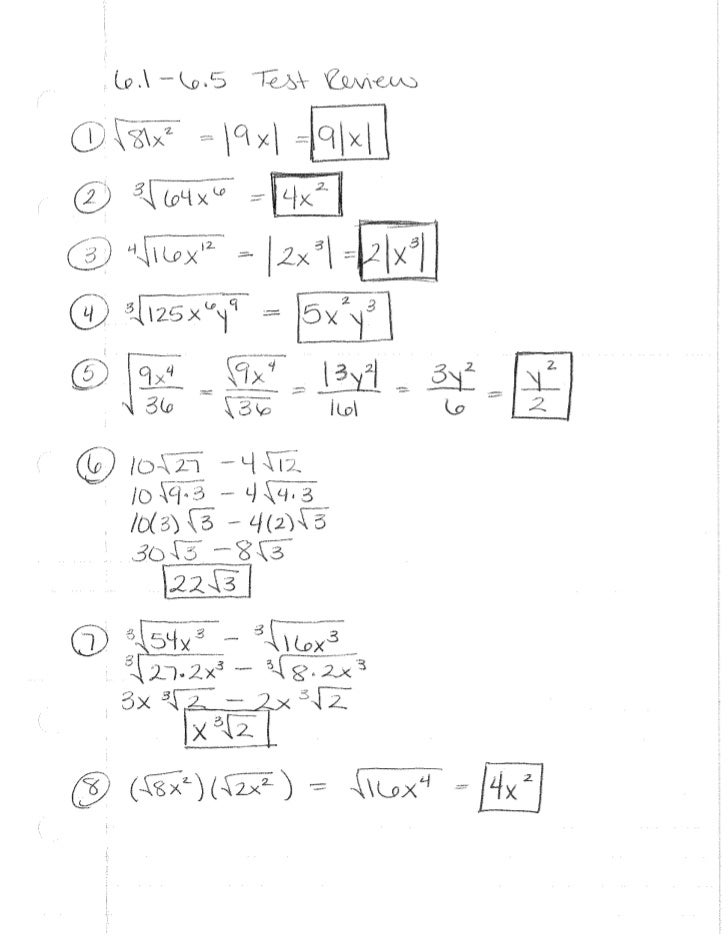 6.1-6.5 Test Review
① √81x² = |9x| = 9|x|
② ³√64x⁶ = 4x²
③ ⁴√16x¹² = |2x³| = 2|x³|
④ ³√125x⁶y⁹ = 5x²y³
⑤ √(9x⁴/36) = √9x⁴/√36 = |3y²|/|6| = 3y²/6 = y²/2
⑥ 10√27 - 4√12
10√9·3 - 4√4·3
10(3)√3 - 4(2)√3
30√3 - 8√3
22√3
⑦ ³√54x³ - ³√16x³
³√27·2x³ - ³√8·2x³
3x ³√2 - 2x ³√2
x ³√2
⑧ (√8x²)(√2x²) = √16x⁴ = 4x²